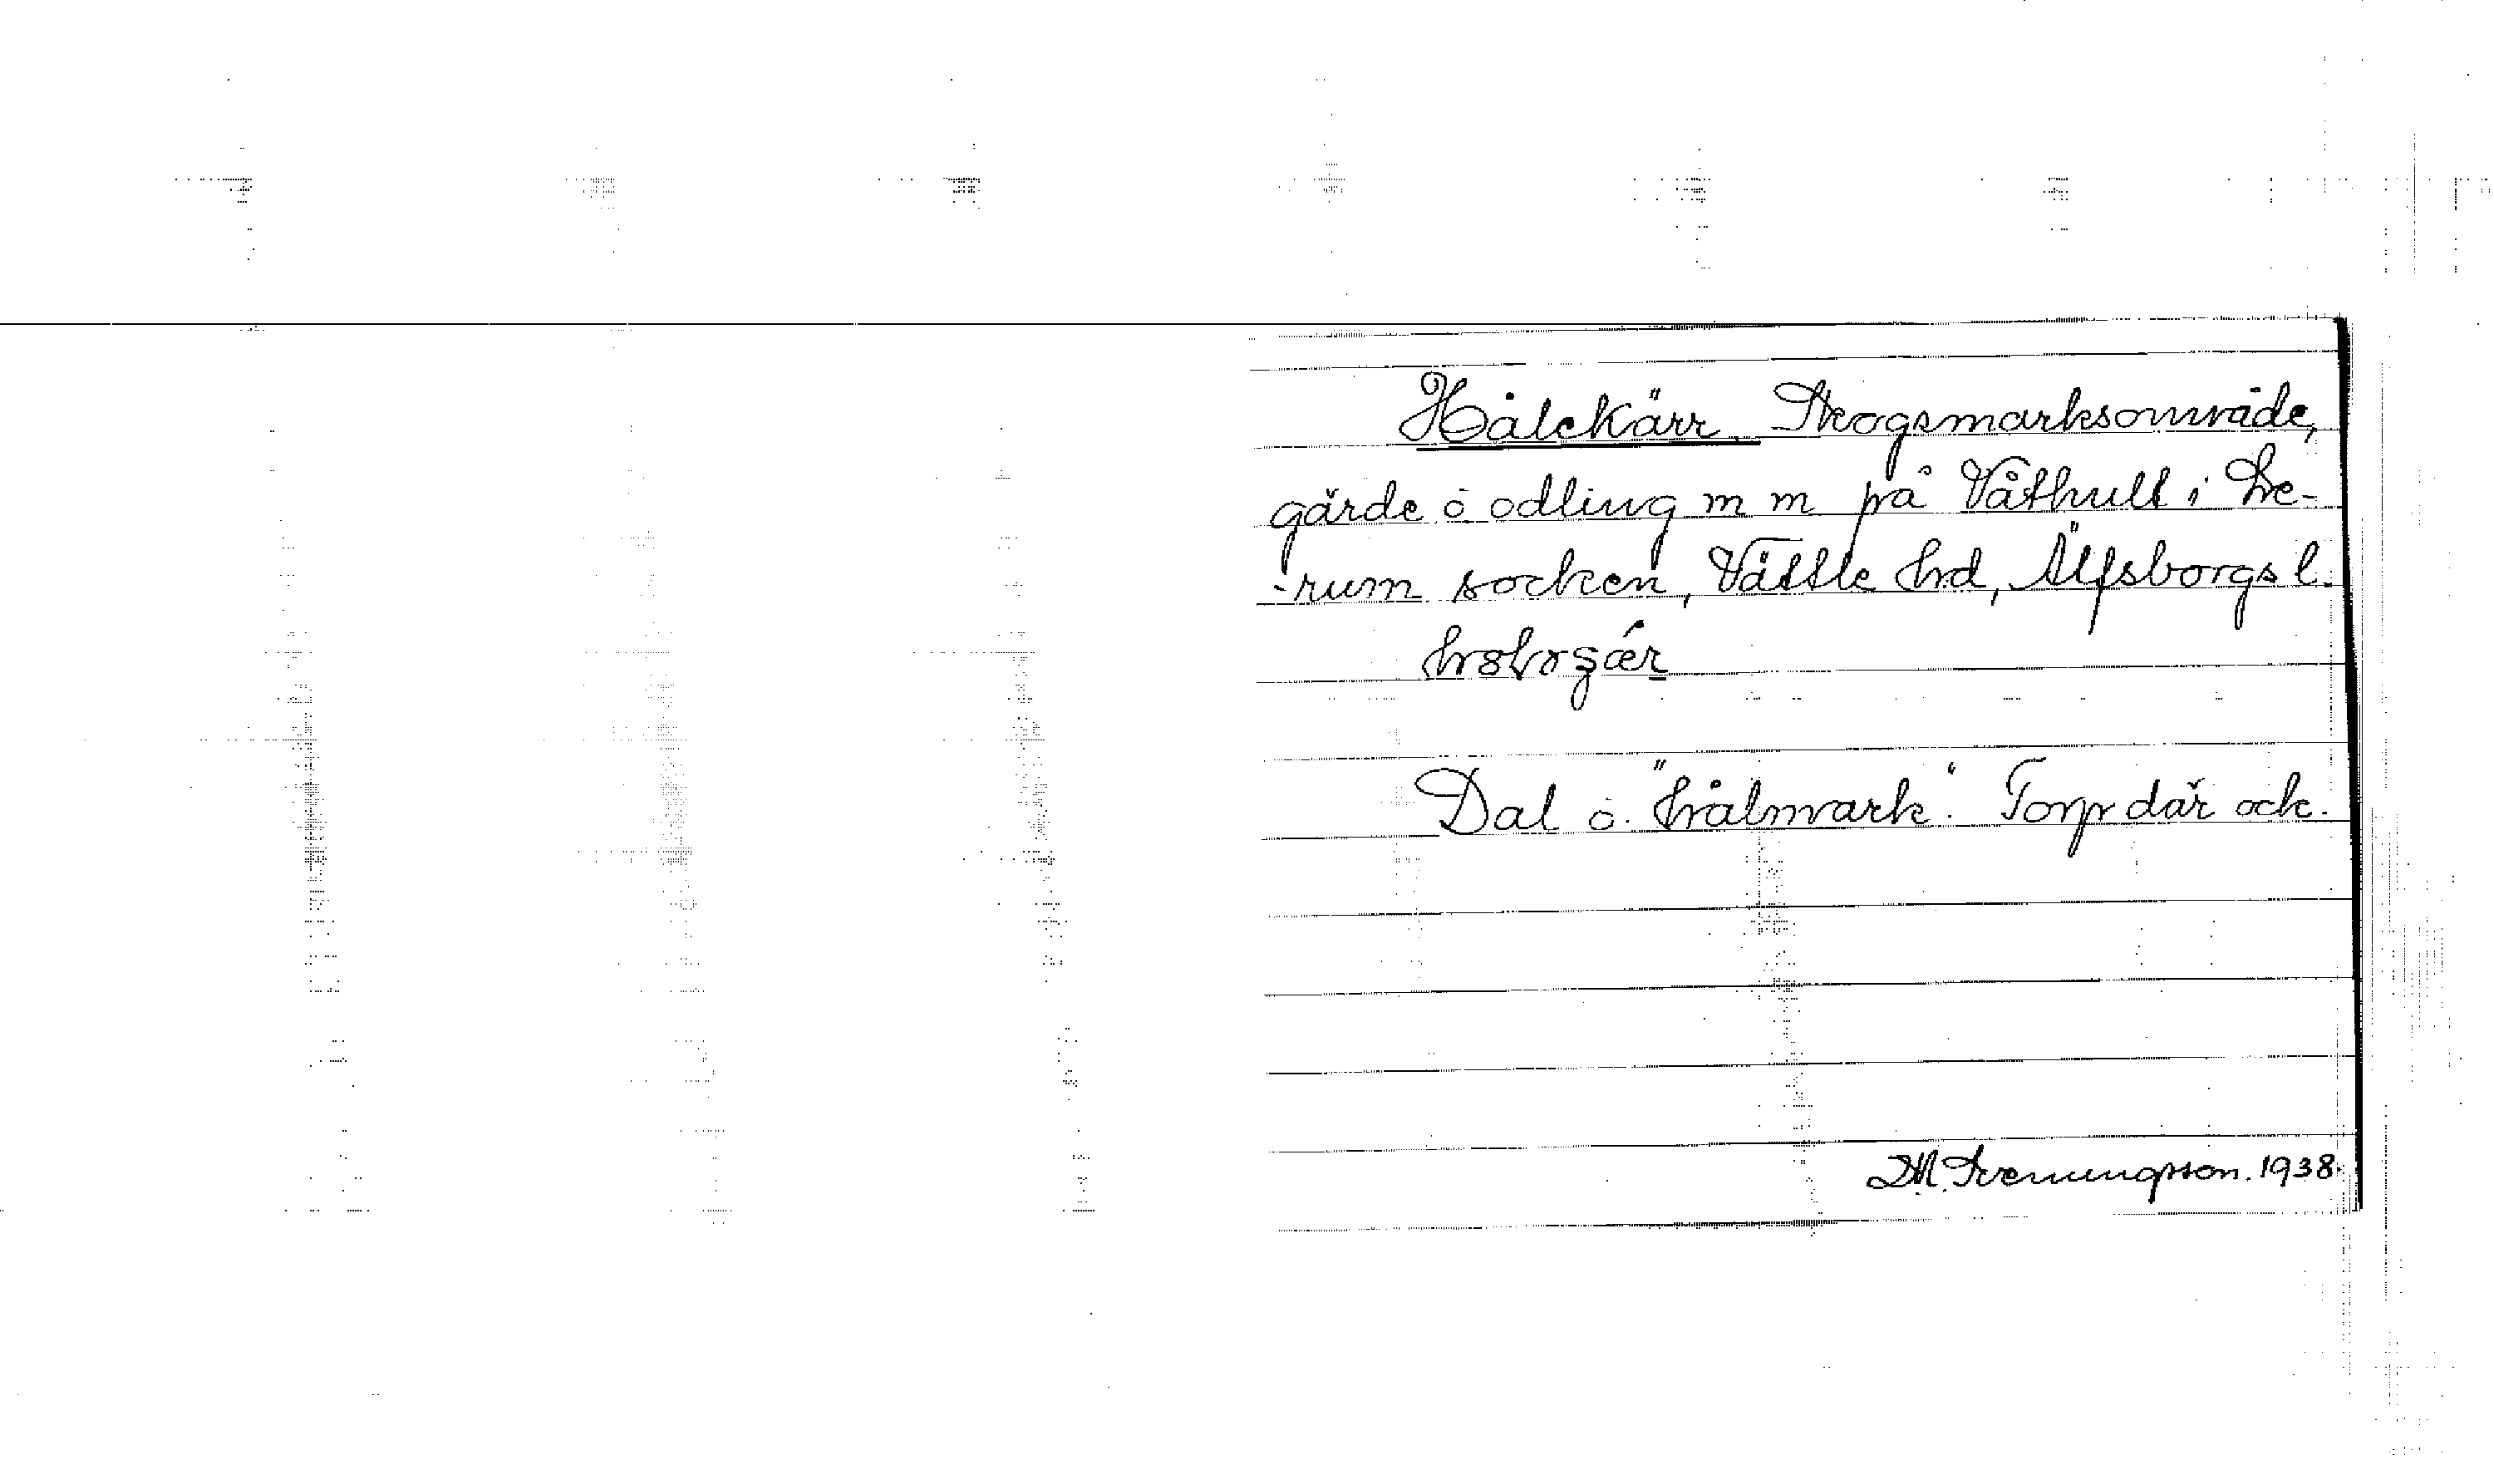 Hålekärr. Skogsmarksområde,
gärde o odling m m på Våthult i Le-
-rum socken, Vättle hrd, Älfsborgs l.
Dal o. "hålmark". Torp där ock.
1938.